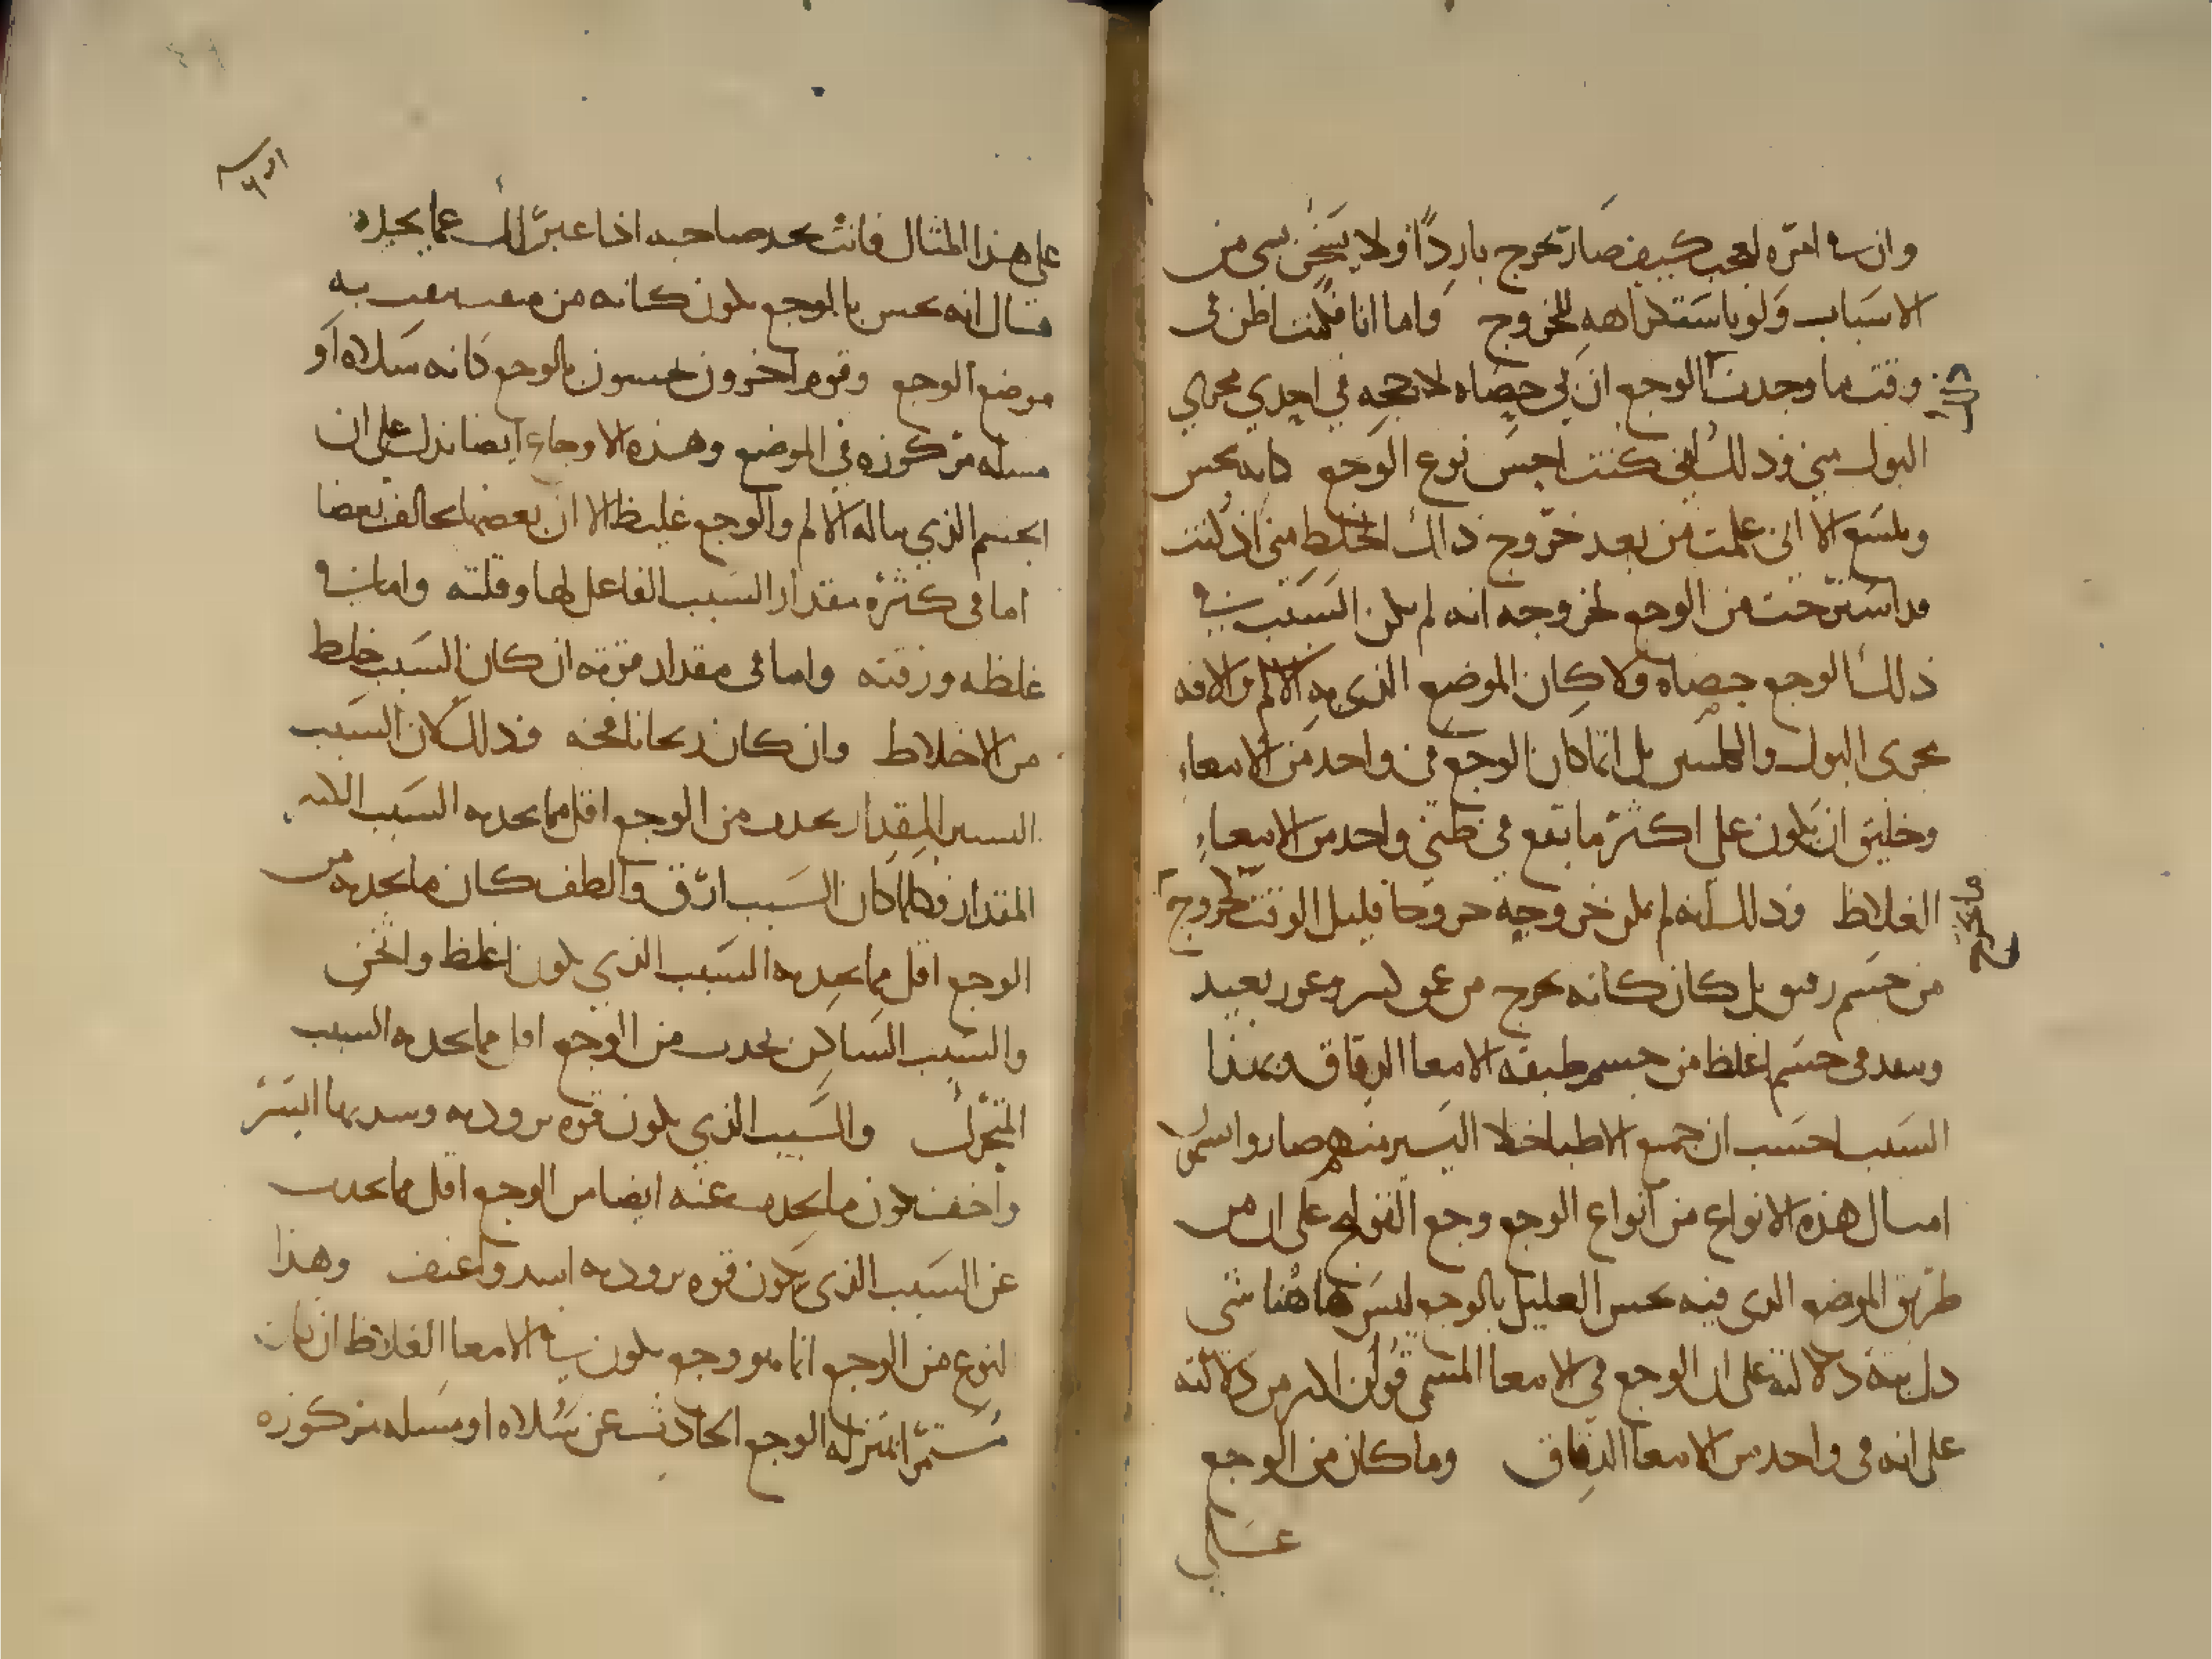 وان في امره لعجب كيف صار تخرج باردا ولا يسخن بشي من
الاسباب ولو باستكراهه للخروج واما انا فكنت اظن في
وقت ما وجدت الوجع ان لي حصاه لاحجه في احدي مجراي
البول مني وذلك انني كنت احس نوع الوجع كانه نخس
ويلسع الا اني علمت من بعد خروج ذلك الخلط مني اذ كنت
قد استرحت من الوجع لخروجه انه لم يكن السبب في
ذلك الوجع حصاه ولا كان الموضع الذي به الالم والافه
مجرى البول والكليتين بل انما كان الوجع في واحد من الامعاء
وخليق ان يكون على اكثر ما يقع في ظني واحد من الامعاء
الغلاظ وذلك انه لم يكن خروجه خروجا قليل الوقت كخروج
من جسم رقيق بل كان كانه يخرج من عمق كبير وغور بعيد
وينفد في جسم اغلظ من جسم طبقه الامعا الدقاق وبهذا
السبب احسب ان جميع الاطبا خلا اليسير منهم صاروا يسمون
امثال هذه الانواع من انواع الوجع وجع القولنج على ان من
طريق الموضع الذي فيه يحس العليل بالوجع ليس هاهنا شي
دل بته دلالته على ان الوجع في الامعا المسمى قولن اكثر من دلالته
على انه في واحد من الامعا الدقاق وما كان من الوجع
على
على هذا المثال فانت تجد صاحبه اذا عبر لك عما يجده
فقال انه يحس بالوجع يكون كانه من مثقب يثقب به
موضع الوجع وقوم اخرون يحسون بالوجع كانه سلاه او
مسله مركوزه في الموضع وهذه الاوجاع ايضا تدل على ان
الجسم الذي يناله الالم والوجع غليظ الا ان بعضها يخالف بعضا
اما في كثره مقدار السبب الفاعل لها وقلته واما في
غلظه ورقته واما في مقدار قوته ان كان السبب خلط
من الاخلاط وان كان ريحا نافخه وذلك لان السبب
اليسير المقدار يحدث من الوجع اقل مما يحدثه السبب الكثير
المقدار وكلما كان السبب ارق والطف كان ما يحدثه من
الوجع اقل مما يحدثه السبب الذي يكون اغلظ واثخن
والسبب الساكن يحدث من الوجع اقل مما يحدثه السبب
المتحرك والسبب الذي يكون قوه برودته وشدتها ايسر
واخف يكون ما يحدث عنه ايضا من الوجع اقل مما يحدث
عن السبب الذي يكون قوه برودته اشد واعنف وهذا
النوع من الوجع انما هو وجع يكون في الامعا الغلاظ ان كان
مستمرا بمنزله الوجع الحادث عن سلاه او مسله مركوزه